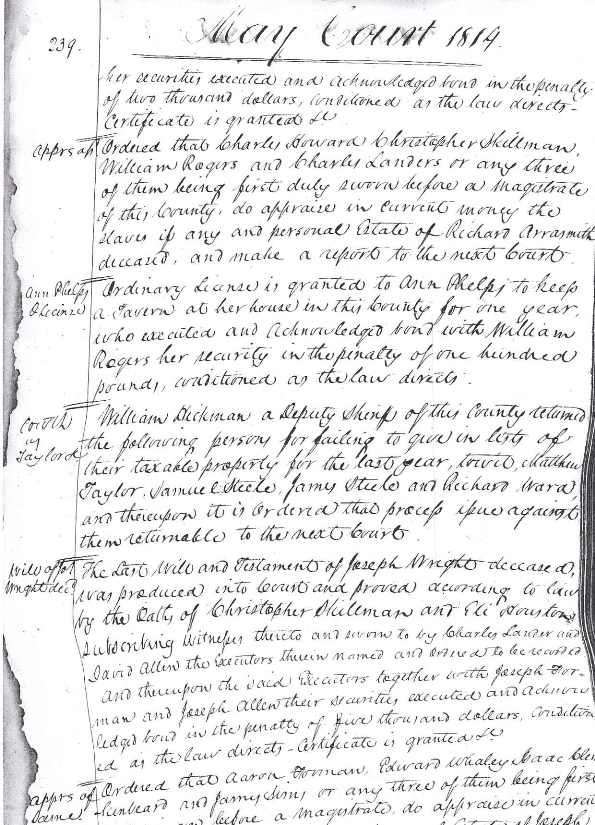 239.
May Court 1819.
her securities executed and acknowledged bond in the penalty
of two thousand dollars, conditioned as the law directs-
Certificate is granted &c
apprs of
Ordered that Charles Howard Christopher Skillman,
William Rogers and Charles Landers or any three
of them being first duly sworn before a magistrate
of this County, do appraise in current money the
slaves if any and personal Estate of Richard Arrasmith
deceased, and make a report to the next Court.
Ann Phelps
Olicense
Ordinary License is granted to Ann Phelps to keep
a Tavern at her house in this County for one year,
who executed and acknowledged bond with William
Rogers her security in the penalty of one hundred
pounds, conditioned as the law directs.
Cowth
vs
Taylor &
William Dickman a Deputy Sheriff of this County returned
the following persons for failing to give in lists of
their taxable property for the last year, towit, Matthew
Taylor, Samuel Steele, James Steele and Richard Ward,
and thereupon it is Ordered that process issue against
them returnable to the next Court.
Will of Jos.
Wright dec'd
The Last Will and Testament of Joseph Wright deceased,
was produced into Court and proved according to law
by the Oaths of Christopher Skillman and Eli Houston,
subscribing witnesses thereto and sworn to by Charles Lander and
David Allen the Executors therein named and Ordered to be recorded
And thereupon the said Executors together with Joseph For-
man and Joseph Allen their securities executed and acknow
ledged bond in the penalty of five thousand dollars, condition
ed as the law directs - Certificate is granted &c
apprs of
same
Ordered that Aaron Forman, Edward Whaley, Isaac Clin
kenbeard and James Sims or any three of them being first
before a magistrate, do appraise in current
Joseph